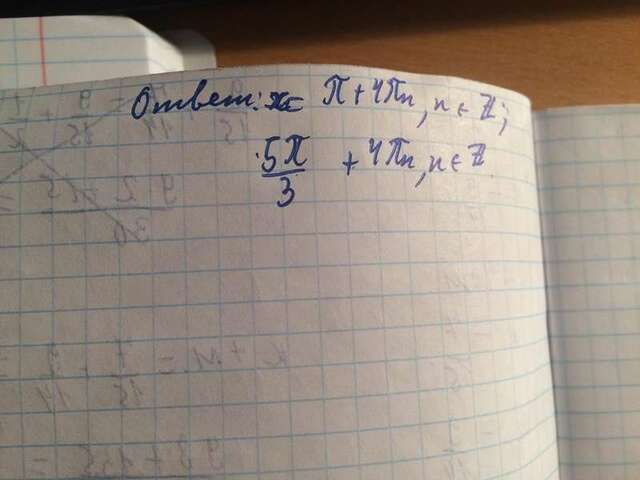 Ответ: x= π+4πn, n∈ℤ;
5π/3 +4πn, n∈ℤ